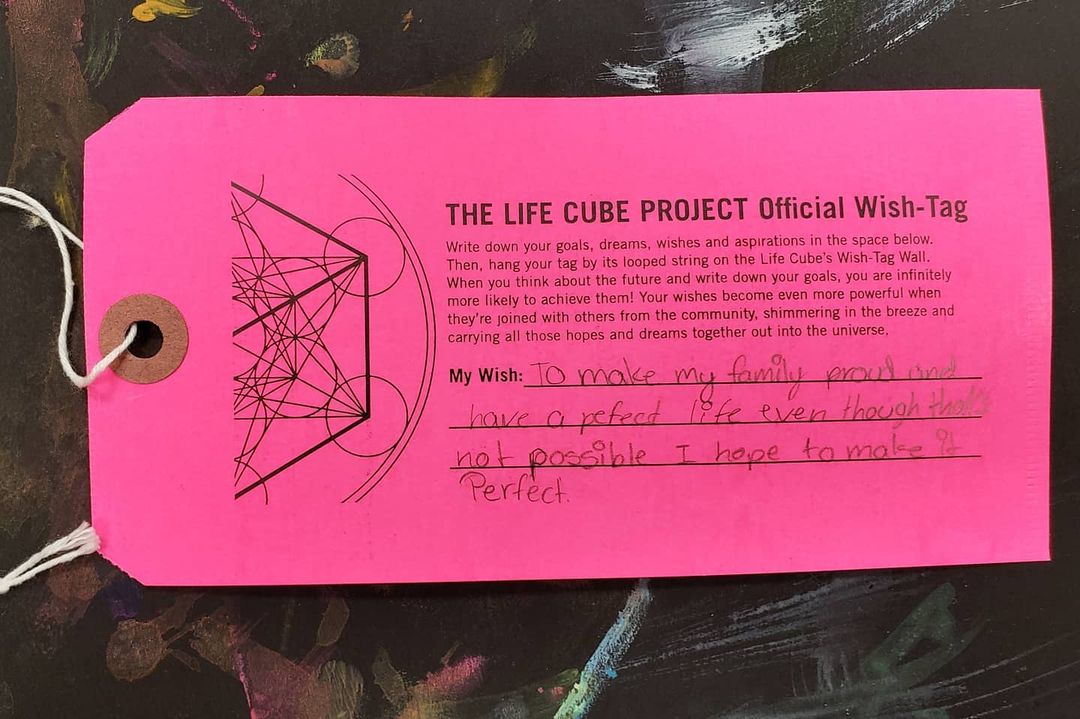 THE LIFE CUBE PROJECT Official Wish-Tag
Write down your goals, dreams, wishes and aspirations in the space below.
Then, hang your tag by its looped string on the Life Cube's Wish-Tag Wall.
When you think about the future and write down your goals, you are infinitely
more likely to achieve them! Your wishes become even more powerful when
they're joined with others from the community, shimmering in the breeze and
carrying all those hopes and dreams together out into the universe,
My Wish: To make my family proud and
have a pefect life even though that's
not possible I hope to make it
Perfect.